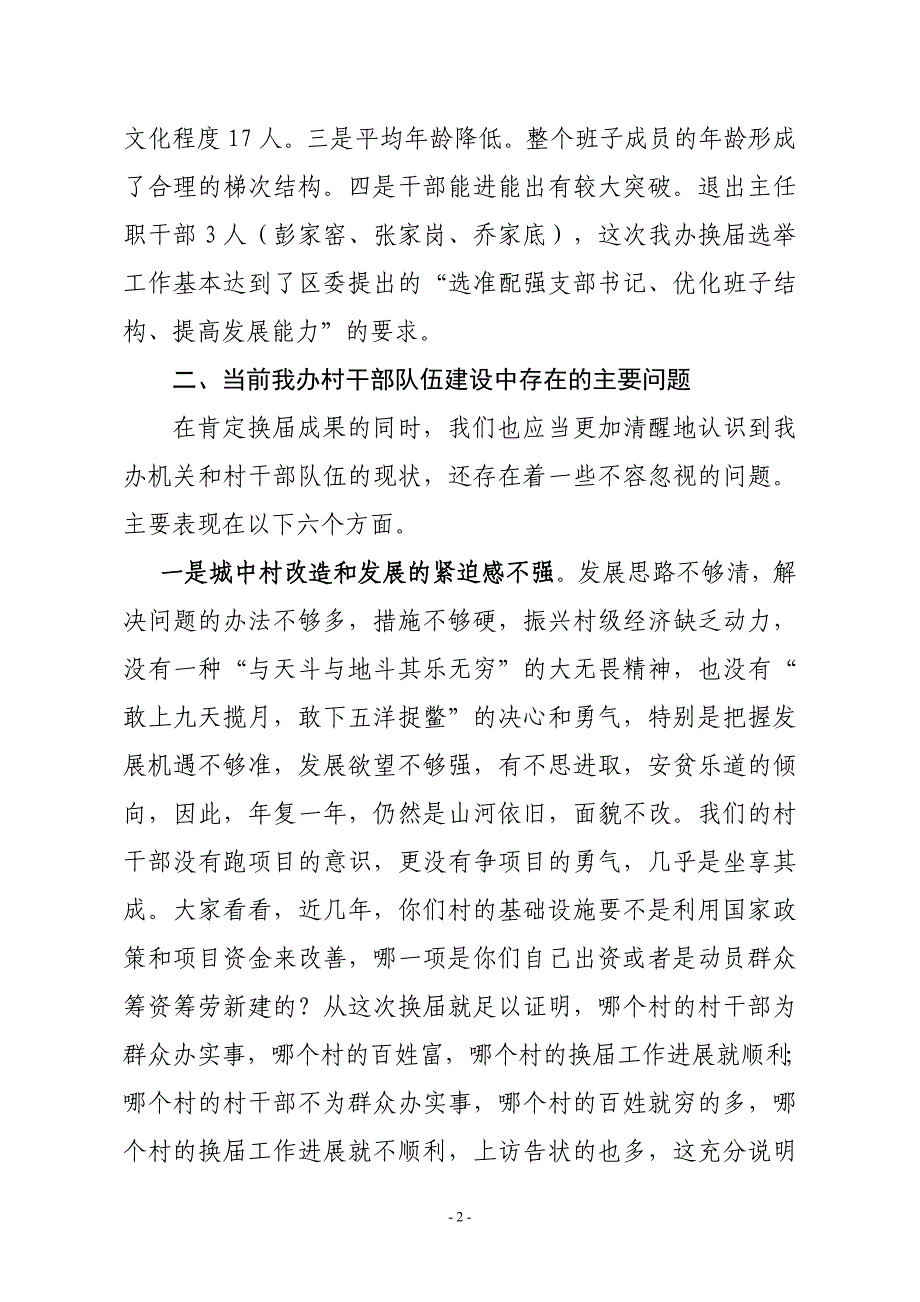 文化程度 17 人。三是平均年龄降低。整个班子成员的年龄形成
了合理的梯次结构。四是干部能进能出有较大突破。退出主任
职干部 3 人（彭家窑、张家岗、乔家底），这次我办换届选举
工作基本达到了区委提出的“选准配强支部书记、优化班子结
构、提高发展能力”的要求。
二、当前我办村干部队伍建设中存在的主要问题
在肯定换届成果的同时，我们也应当更加清醒地认识到我
办机关和村干部队伍的现状，还存在着一些不容忽视的问题。
主要表现在以下六个方面。
一是城中村改造和发展的紧迫感不强。发展思路不够清，解
决问题的办法不够多，措施不够硬，振兴村级经济缺乏动力，
没有一种“与天斗与地斗其乐无穷”的大无畏精神，也没有“
敢上九天揽月，敢下五洋捉鳖”的决心和勇气，特别是把握发
展机遇不够准，发展欲望不够强，有不思进取，安贫乐道的倾
向，因此，年复一年，仍然是山河依旧，面貌不改。我们的村
干部没有跑项目的意识，更没有争项目的勇气，几乎是坐享其
成。大家看看，近几年，你们村的基础设施要不是利用国家政
策和项目资金来改善，哪一项是你们自己出资或者是动员群众
筹资筹劳新建的？从这次换届就足以证明，哪个村的村干部为
群众办实事，哪个村的百姓富，哪个村的换届工作进展就顺利；
哪个村的村干部不为群众办实事，哪个村的百姓就穷的多，哪
个村的换届工作进展就不顺利，上访告状的也多，这充分说明
- 2 -